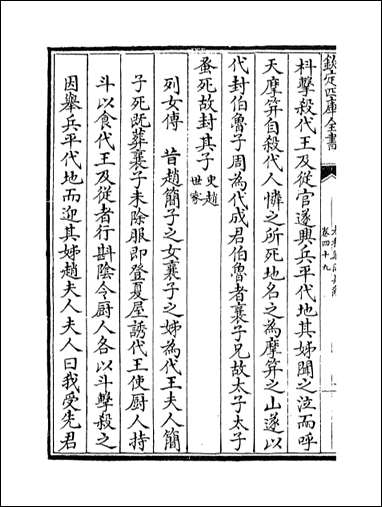 欽定四庫全書
卷四十九
枓擊殺代王及從官遂興兵平代地其姊聞之泣而呼
天摩筓自殺代人憐之所死地名之為摩筓之山遂以
代封伯魯子周為代成君伯魯者襄子兄故太子太子
蚤死故封其子
史趙
世家
列女傳 昔趙簡子之女襄子之姊為代王夫人簡
子死既葬襄子未除服即登夏屋誘代王使厨人持
斗以食代王及從者行斟陰令厨人各以斗擊殺之
因舉兵平代地而迎其姊趙夫人夫人曰我受先君